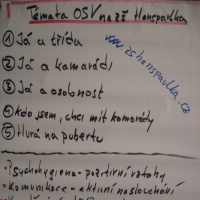 Témata OSV na ZŠ Hanspaulka
① Já a třída
② Já a kamarádi
③ Já a osobnost
④ Kdo jsem, chci mít kamarády
⑤ Hurá na pubertu
www.zshanspaulka.cz
• Psychohygiena - pozitivní vztahy
• Komunikace - aktivní naslouchání